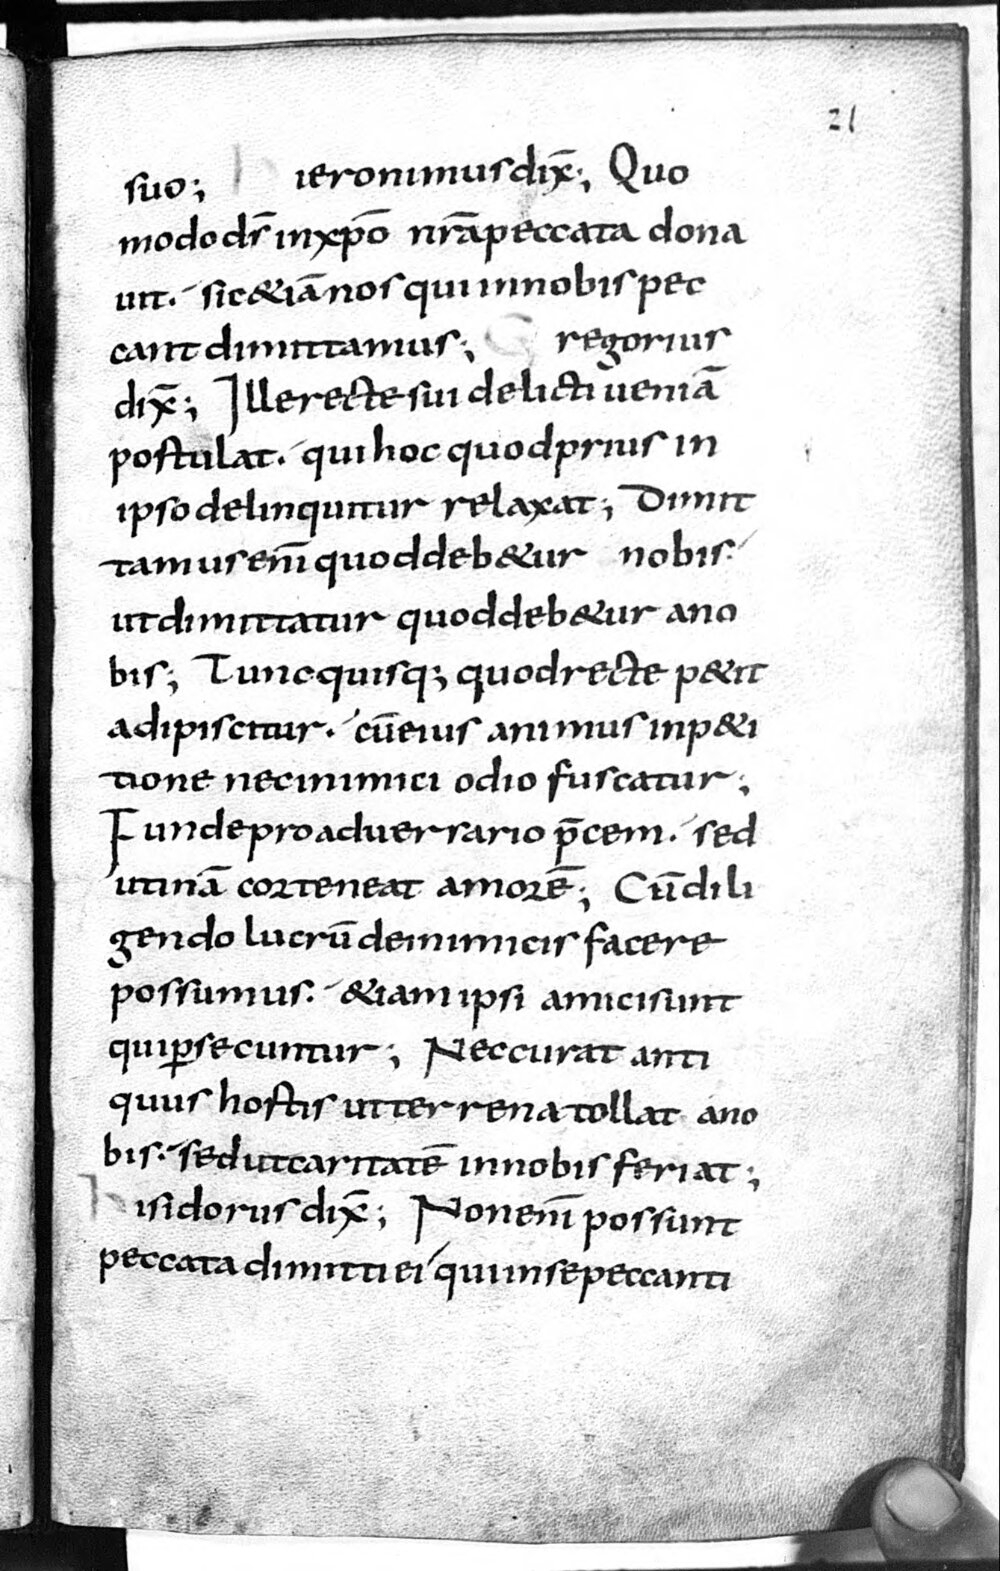 21
suo; hieronimus dix̄; Quo
modo dr̄ in xpō nr̄a peccata dona
uit. sic &iā nos qui in nobis pec
cant dimittamus; Gregorius
dix̄; Ille recte sui delicti ueniā
postulat. qui hoc quod prius in
ipso delinquitur relaxat; Dimit
tamus enī quod deb&ur nobis.
ut dimittatur quod deb&ur ano
bis; Tunc quisq; quod recte p&it
adipiscitur. cū eius animus in p&i
tione nec inimici odio fuscatur;
Funde pro aduersario p̄cem. sed
utinā cor teneat amorē; Cū dili
gendo lucrū de inimicis facere
possumus. &iam ipsi amici sunt
qui ꝑsecuntur; Nec curat anti
quus hostis ut terrena tollat ano
bis. sed ut caritatē in nobis feriat;
hisidorus dix̄; Non enī possunt
peccata dimitti ei qui in se peccanti